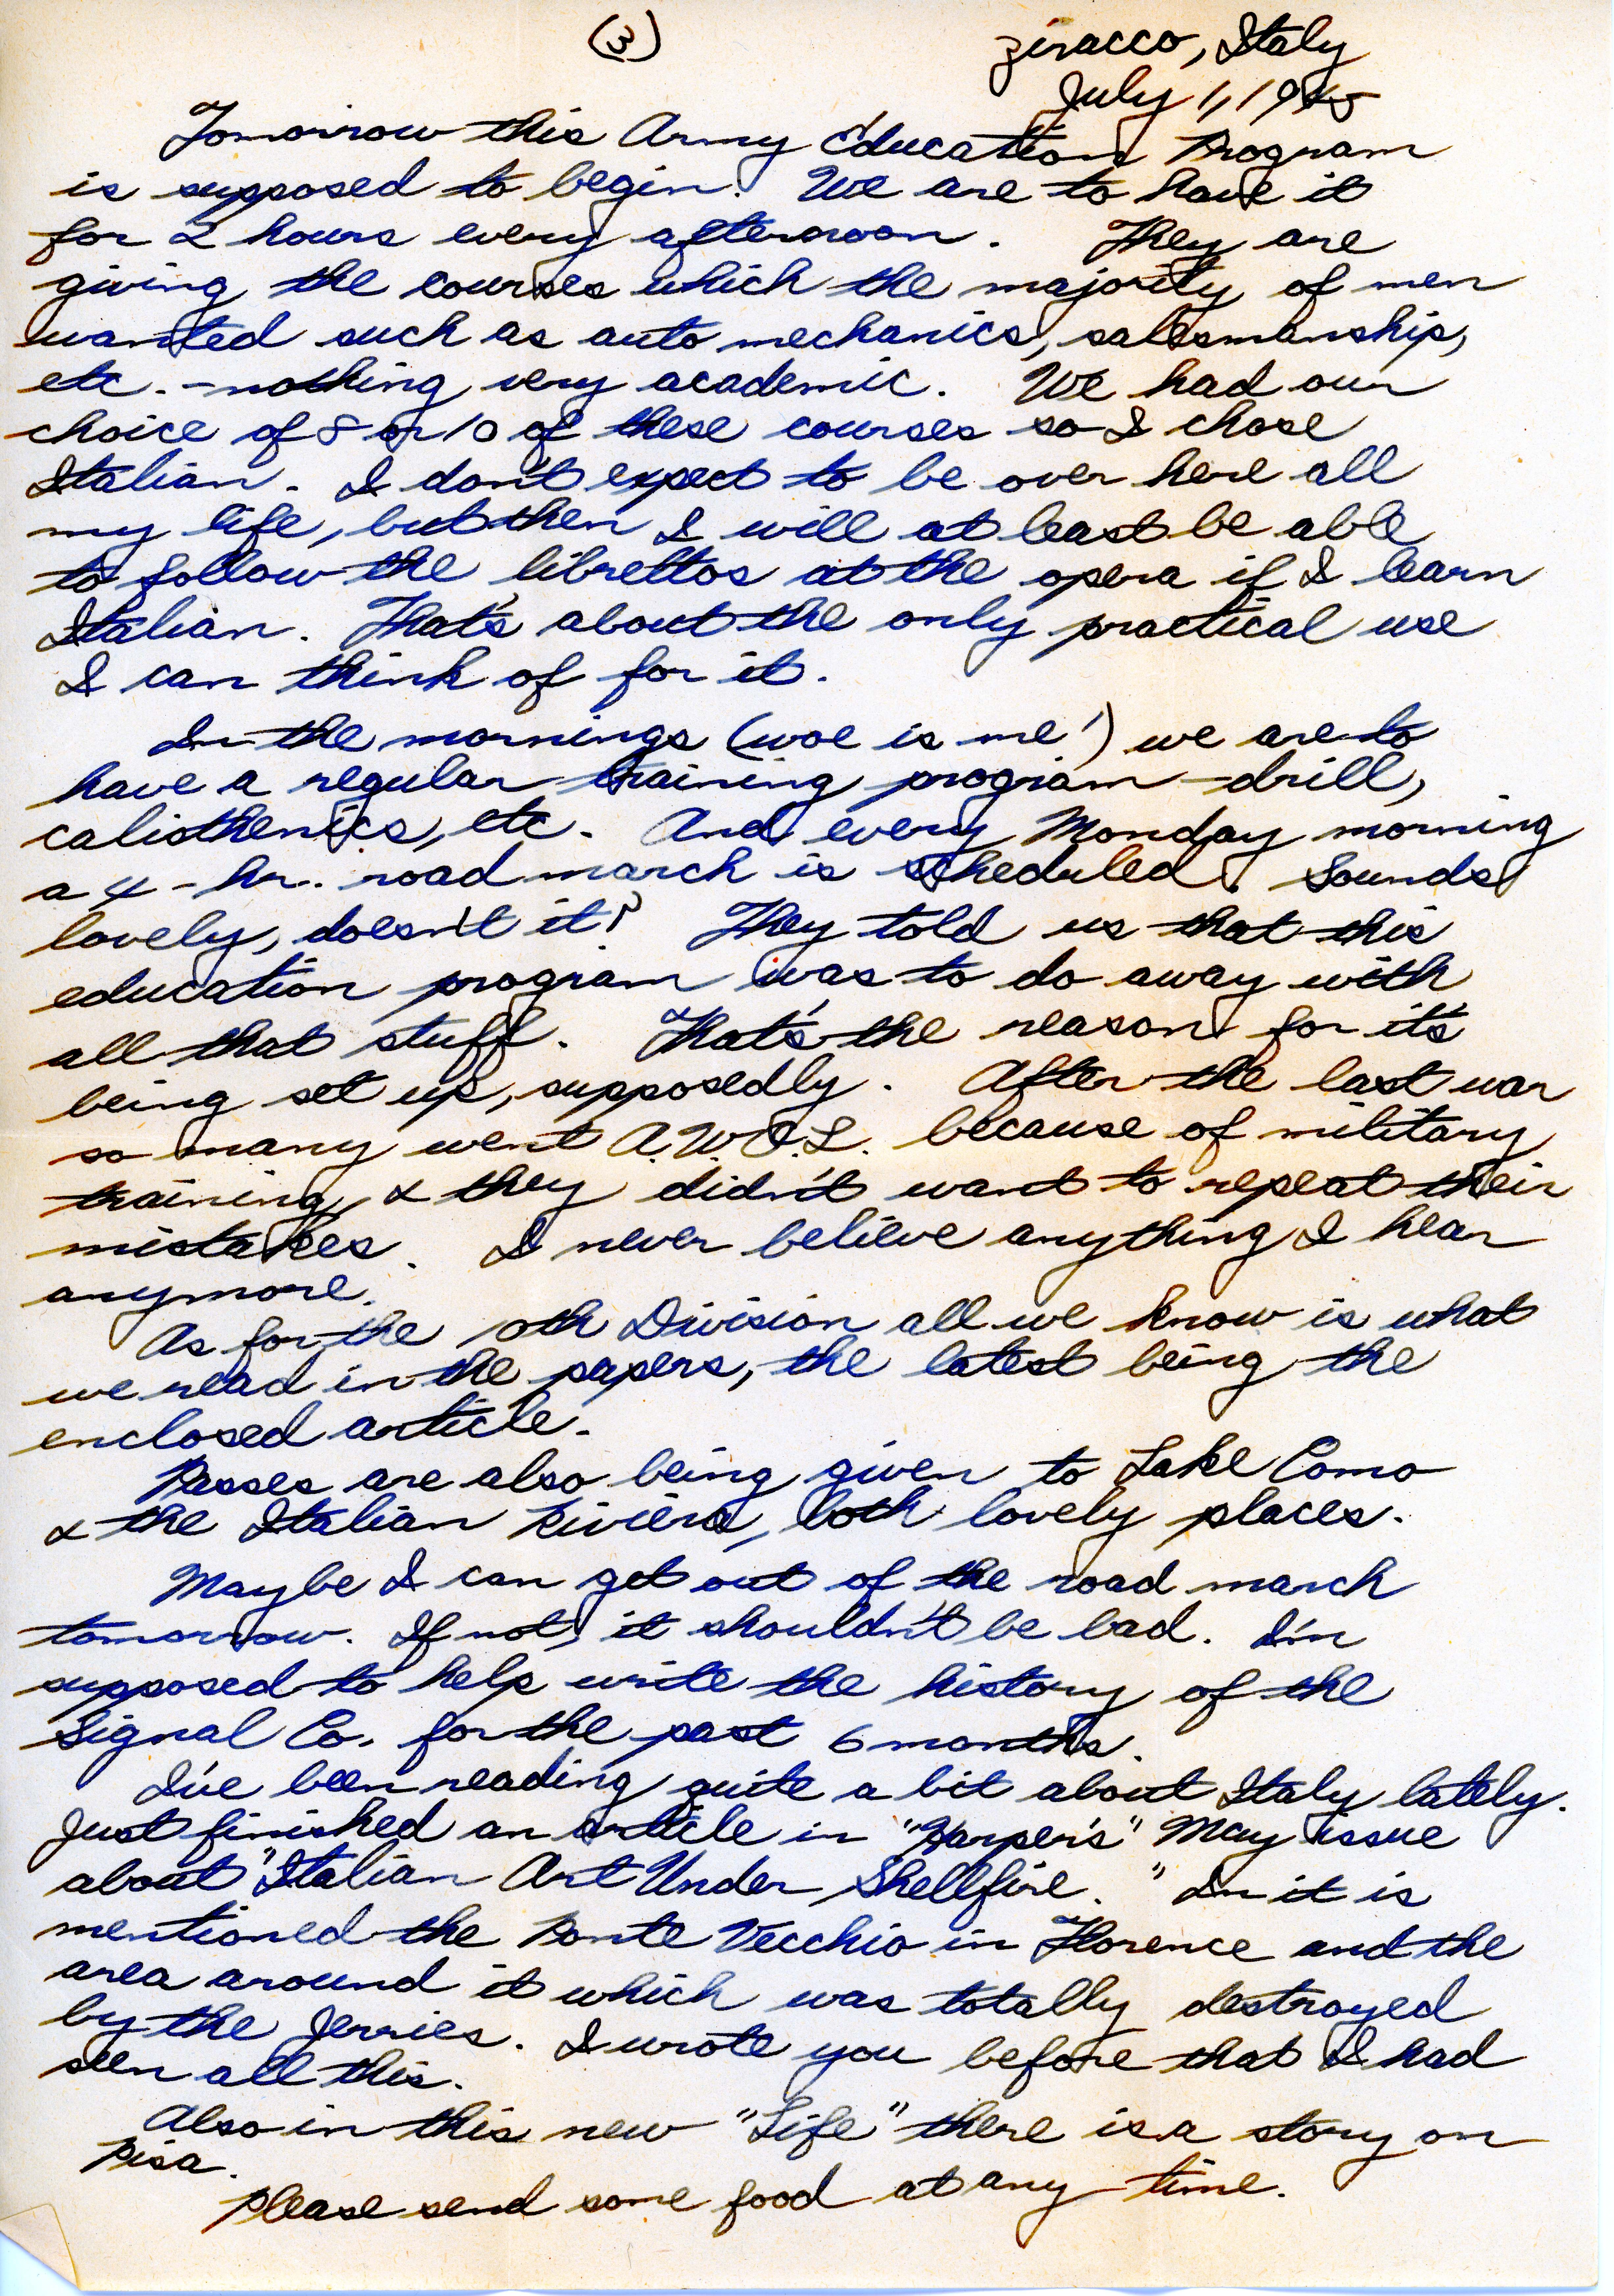 (3)
Ziracco, Italy
July 1, 1945
Tomorrow this Army Education Program
is supposed to begin. We are to have it
for 2 hours every afternoon. They are
giving the courses which the majority of men
wanted such as auto mechanics, salesmanship,
etc. - nothing very academic. We had our
choice of 8 or 10 of these courses so I chose
Italian. I don't expect to be over here all
my life, but then I will at least be able
to follow the librettos at the opera if I learn
Italian. That's about the only practical use
I can think of for it.
In the mornings (woe is me!) we are to
have a regular training program - drill,
calisthenics, etc. And every Monday morning
a 4-hr. road march is scheduled. Sounds
lovely, doesn't it? They told us that this
education program was to do away with
all that stuff. That's the reason for it's
being set up, supposedly. After the last war
so many went A.W.O.L. because of military
training & they didn't want to repeat their
mistakes. I never believe anything I hear
anymore.
As for the 10th Division all we know is what
we read in the papers, the latest being the
enclosed article.
Passes are also being given to Lake Como
& the Italian Riviera, both lovely places.
Maybe I can get out of the road march
tomorrow. If not, it shouldn't be bad. I'm
supposed to help write the history of the
Signal Co. for the past 6 months.
I've been reading quite a bit about Italy lately.
Just finished an article in "Harper's" May issue
about "Italian Art Under Shellfire." In it is
mentioned the Ponte Vecchio in Florence and the
area around it which was totally destroyed
by the Jerries. I wrote you before that I had
seen all this.
Also in this new "Life" there is a story on
Pisa.
Please send some food at any time.